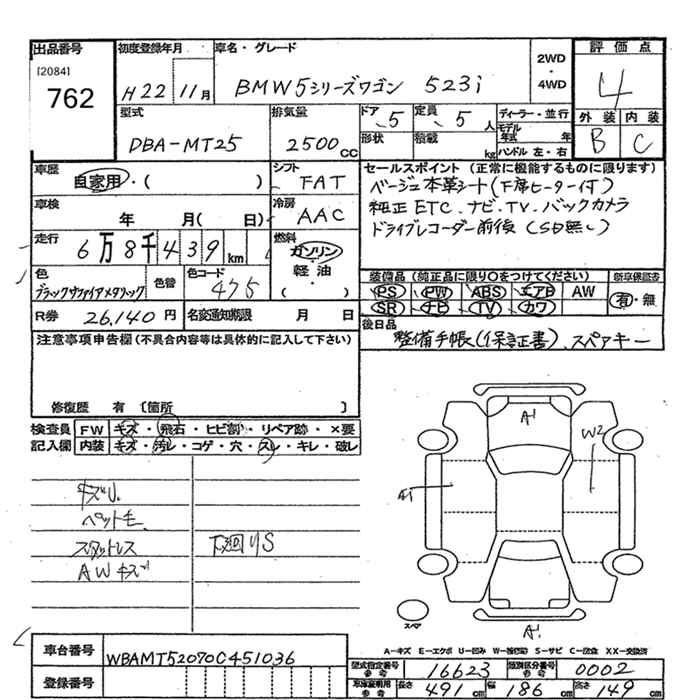 出品番号 初度登録年月 車名・グレード 評価点
[2084]
762
H22 11月 BMW5シリーズワゴン 523i 2WD ・ 4WD 4
型式 排気量 ドア 定員 ディーラー・並行 外装 内装
DBA-MT25 2500cc 5 5人 モデル年式 年 B C
形状 積載 kg ハンドル 左・右
車歴 シフト セールスポイント (正常に機能するものに限ります)
自家用・( ) FAT ベージュ本革シート(下席ヒーター付)
車検 冷房 純正ETC、ナビ、TV、バックカメラ
年 月( 日) AAC ドライブレコーダー前後(SD無し)
走行 6万8千439km 燃料
ガソリン・軽油・( )
色 色替 色コード 装備品 (純正品に限り○をつけてください) 新車保証書
ブラックサファイアメタリック 475 PS PW ABS エアB AW 有・無
SR ナビ TV カワ
R券 26,140円 名変通知期限 月 日 後日品
整備手帳(保証書)、スペアキー
注意事項申告欄 (不具合内容等は具体的に記入して下さい)
修復歴 有 〔箇所 〕
検査員 FW キズ・飛石・ヒビ割・リペア跡・×要
記入欄 内装 キズ・汚レ・コゲ・穴・スレ・キレ・破レ
A1
W2
A1
キズU.
ペット毛
スタットレス 下廻りS
AWキズ
スペア
A1
A-キズ E-エクボ U-凹み W-補修跡 S-サビ C-腐食 XX-交換済
車台番号 WBAMT52070C451036
登録番号
型式指定番号 参考 16623 類別区分番号 参考 0002
車庫証明用 参考 長さ 491cm 幅 186cm 高さ 149cm